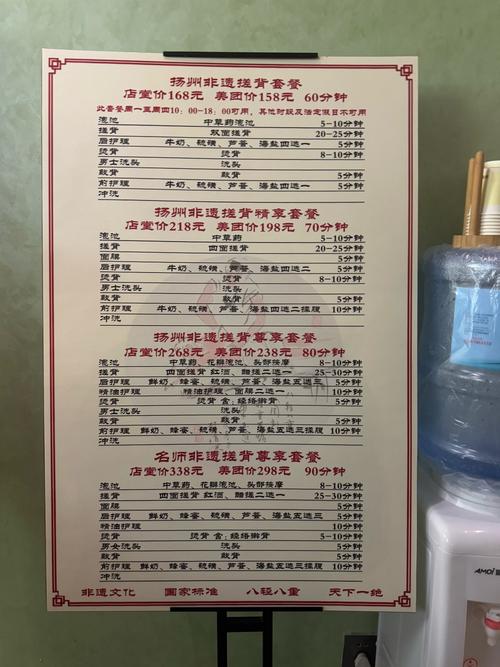 扬州非遗搓背套餐
店堂价168元 美团价158元 60分钟
此套餐周一至周四10:00-18:00可用,其他时段及法定假日不可用
泡池 中草药泡池 5-10分钟
搓背 双面搓背 20-25分钟
后护理 牛奶、硫磺、芦荟、海盐四选一 5分钟
烫背 烫背 8-10分钟
男士洗头 洗头
敲背 敲背 5分钟
前护理 牛奶、硫磺、芦荟、海盐四选一 5分钟
冲洗
扬州非遗搓背精享套餐
店堂价218元 美团价198元 70分钟
泡池 中草药 5-10分钟
搓背 四面搓背 20-25分钟
面膜 5分钟
后护理 牛奶、硫磺、芦荟、海盐四选二 5分钟
烫背 烫背 8-10分钟
男士洗头 洗头
敲背 敲背 5分钟
前护理 牛奶、硫磺、芦荟、海盐四选二揉腹 10分钟
冲洗
扬州非遗搓背尊享套餐
店堂价268元 美团价238元 80分钟
泡池 中草药、花瓣泡池、头部按摩 8-10分钟
搓背 四面搓背 红酒、醋搓二选一 25-30分钟
后护理 鲜奶、蜂蜜、硫磺、芦荟、海盐五选三 5分钟
精油护理 精油护理、面膜二选一 10分钟
烫背 烫背 含:经络揪背 5-10分钟
男士洗头 洗头
敲背 敲背 5分钟
前护理 鲜奶、蜂蜜、硫磺、芦荟、海盐五选三揉腹 10分钟
冲洗
名师非遗搓背尊享套餐
店堂价338元 美团价298元 90分钟
泡池 中草药、花瓣泡池、头部按摩 8-10分钟
搓背 四面搓背 红酒、醋搓二选一 25-30分钟
面膜 5分钟
后护理 鲜奶、蜂蜜、硫磺、芦荟、海盐五选三 5分钟
精油护理 10分钟
烫背 烫背 含:经络揪背 5-10分钟
男女洗头 洗头 5分钟
敲背 敲背 5分钟
前护理 鲜奶、蜂蜜、硫磺、芦荟、海盐五选三揉腹 10分钟
冲洗
非遗文化 国家标准 八轻八重 天下一绝
AMOI